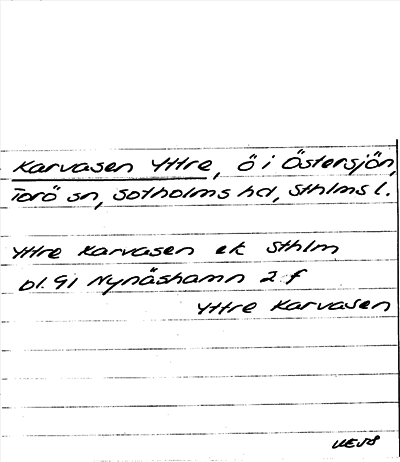 Karvasen Yttre, ö i Östersjön,
Torö sn, Sotholms hd, Sthlms l.
Yttre Karvasen ek Sthlm
bl. 91 Nynäshamn 2 f
Yttre Karvasen